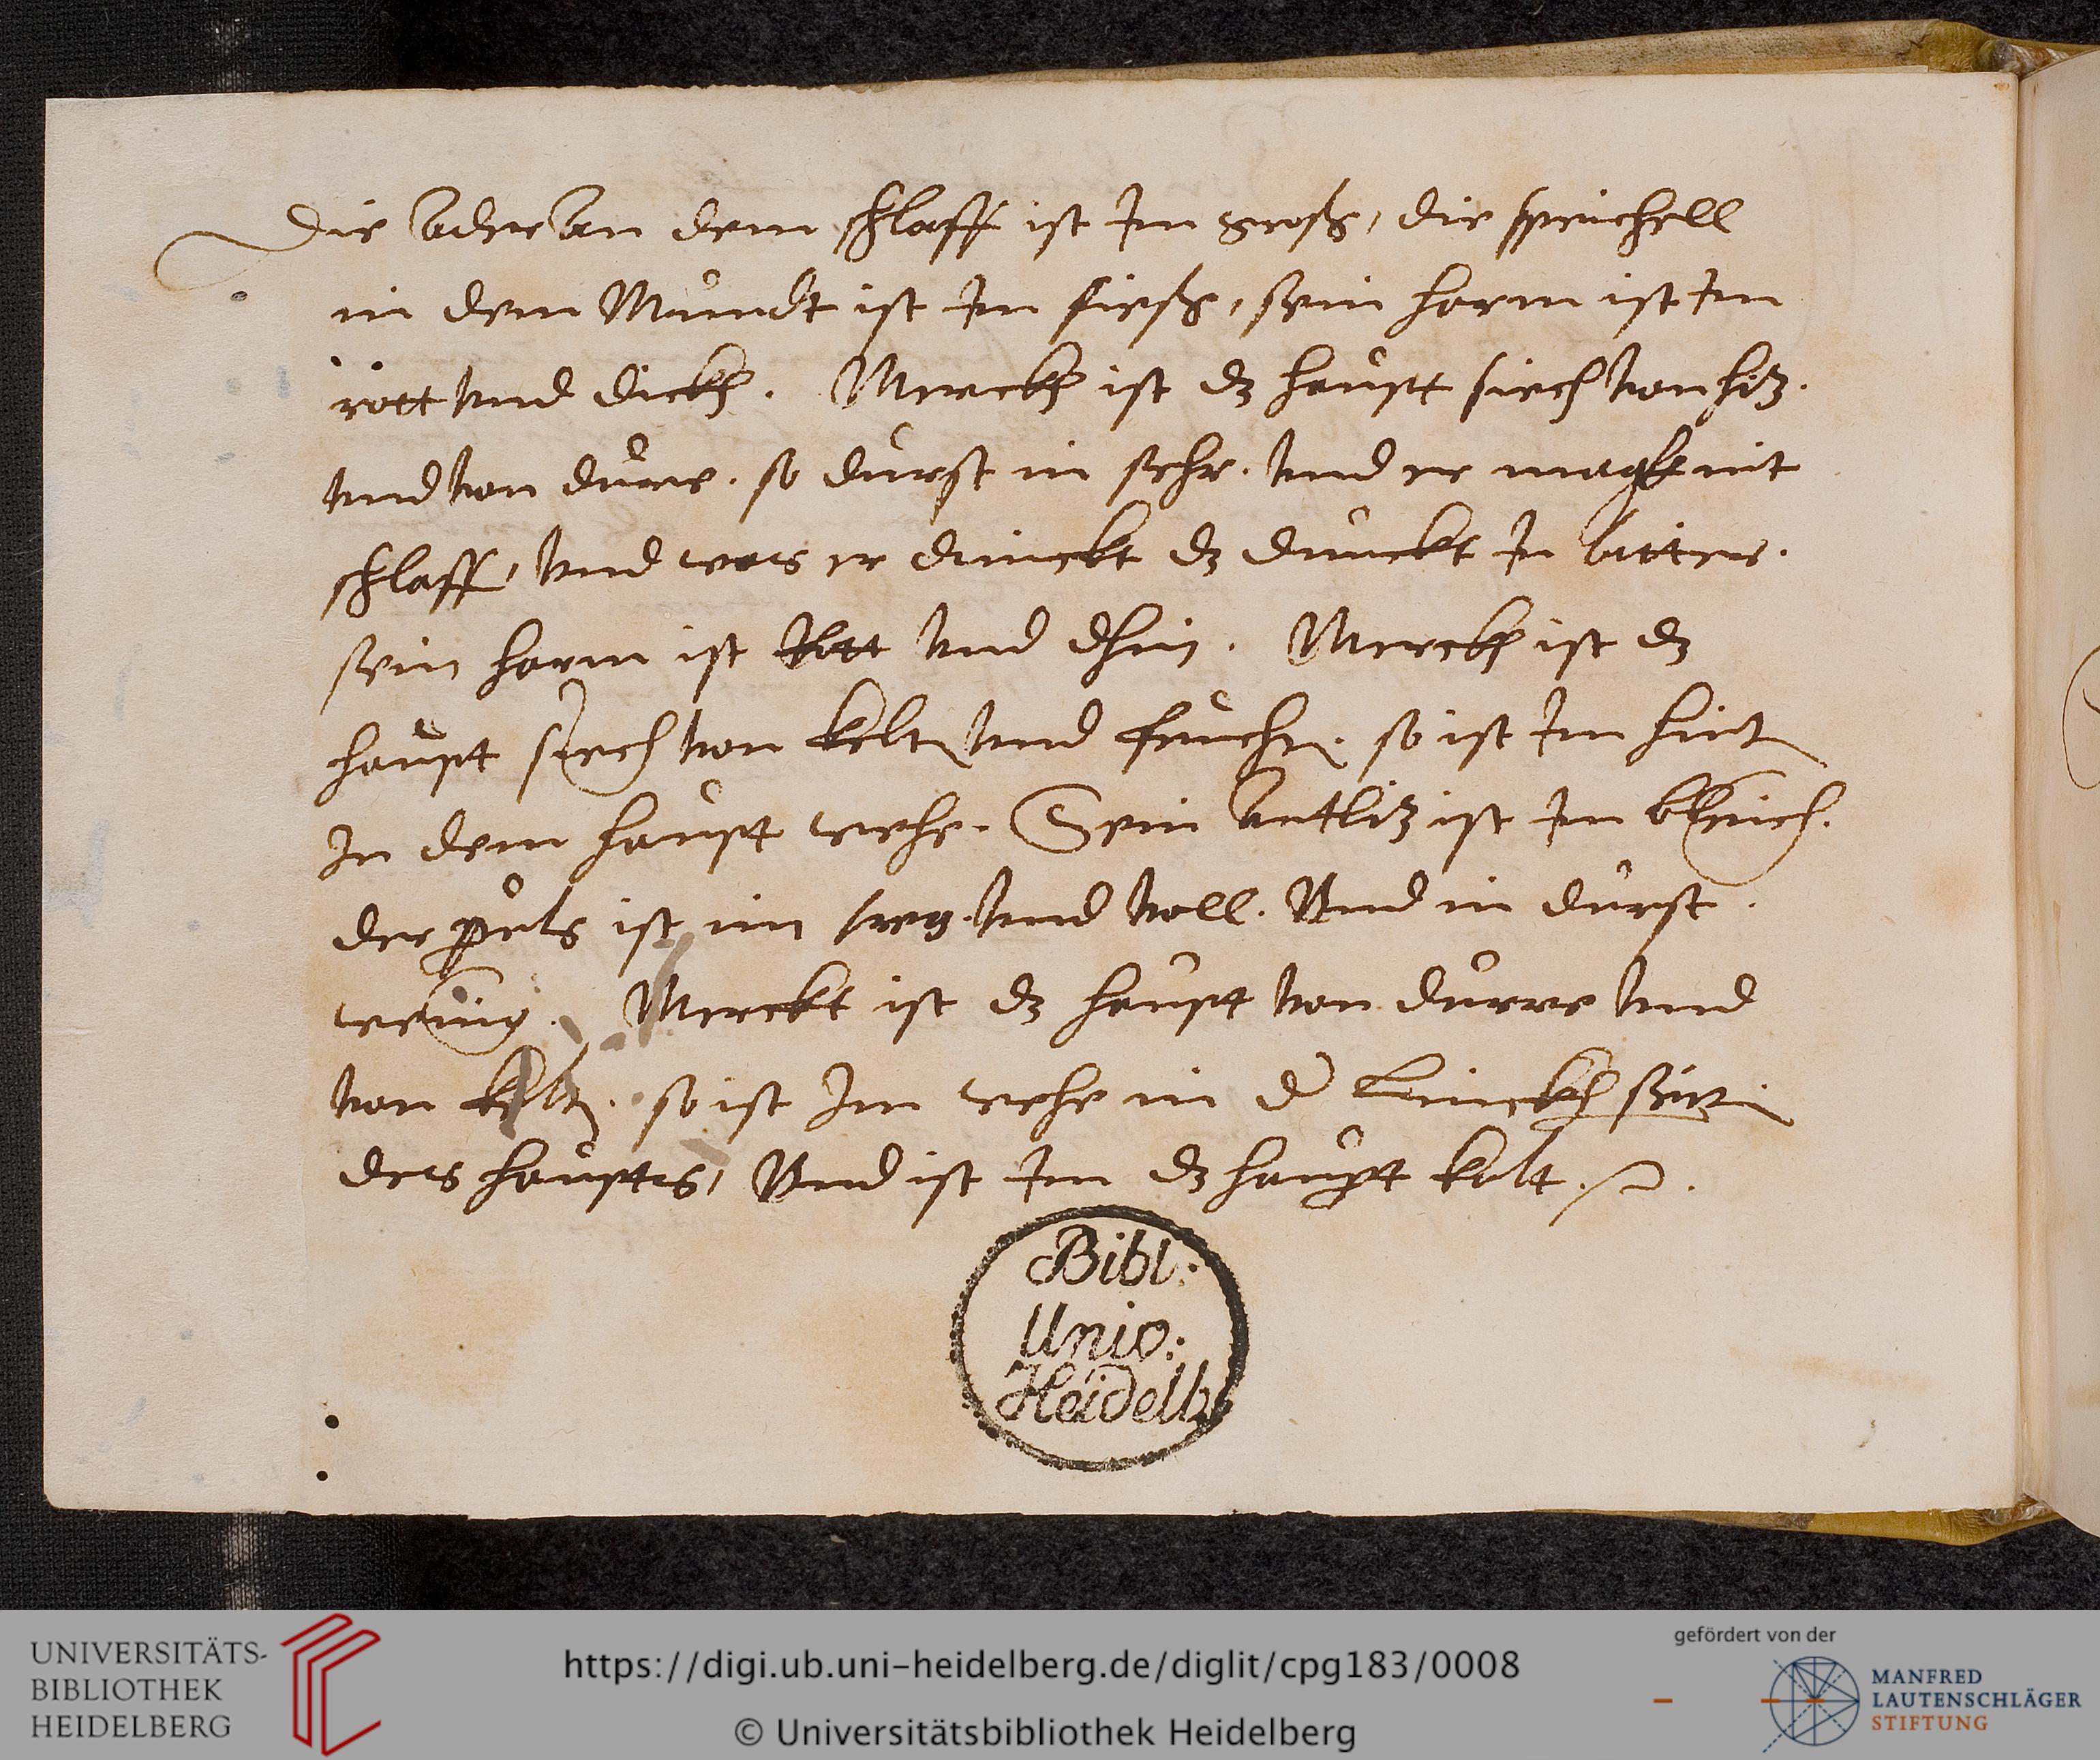 Die ader an dem schlaff ist Im groß, die speichell
in dem Mundt ist Im sieß, sein harm ist Im
rott vnd dickh. Merckh ist dz haupt siech von hitz.
vnd von durre. so durst in sehr. vnd er mag nit
schlaff, vnd was er drinckt dz dunckt In bitter.
sein harm ist rott vnd dhin. Merckh ist dz
haupt siech von kelte vnd feuchte. so ist Im hinden
In dem haupt wehe. Sein antlitz ist Im bleich.
der puls ist im treg vnd voll. Vnd in durst
wenig. Merckt ist dz haupt von durre vnd
von kelte. so ist Im wehe in d linckh seiten
des haupts, Vnd ist Im dz haupt kalt.
Bibl:
Univ:
Heidelb
UNIVERSITÄTS-
BIBLIOTHEK
HEIDELBERG
https://digi.ub.uni-heidelberg.de/diglit/cpg183/0008
© Universitätsbibliothek Heidelberg
gefördert von der
MANFRED
LAUTENSCHLÄGER
STIFTUNG